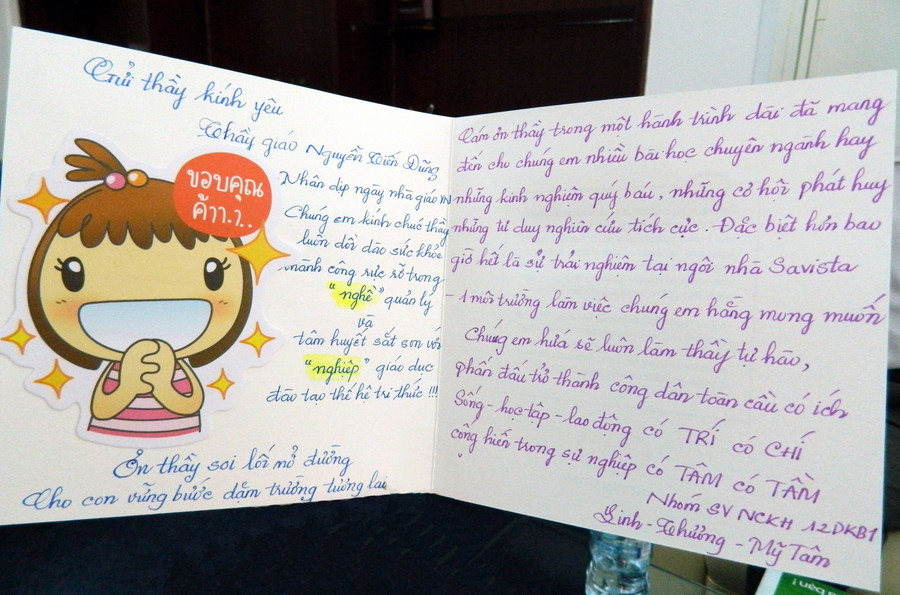 Gửi thầy kính yêu
Thầy giáo Nguyễn Tiến Dũng
Nhân dịp ngày nhà giáo VN
Chúng em kính chúc thầy
luôn dồi dào sức khỏe
thành công rực rỡ trong
"nghề" quản lý
và
tâm huyết sắt son với
"nghiệp" giáo dục
đào tạo thế hệ tri thức !!!
Ơn thầy soi lối mở đường
Cho con vững bước dặm trường tương lai
ขอบคุณ
ค้าา.า..
Cám ơn thầy trong một hành trình dài đã mang
đến cho chúng em nhiều bài học chuyên ngành hay
những kinh nghiệm quý báu, những cơ hội phát huy
những tư duy nghiên cứu tích cực. Đặc biệt hơn bao
giờ hết là sự trải nghiệm tại ngôi nhà Savista
1 môi trường làm việc chúng em hằng mong muốn
Chúng em hứa sẽ luôn làm thầy tự hào,
phấn đấu trở thành công dân toàn cầu có ích
Sống - học tập - lao động có TRÍ có CHÍ
cống hiến trong sự nghiệp có TÂM có TẦM
Nhóm SV NCKH 12DKB1
Linh - Thương - Mỹ Tâm